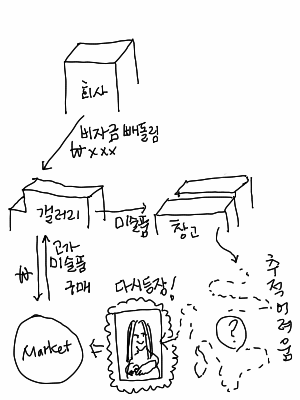 회사
비자금 빼돌림
₩xxx
갤러리
미술품
창고
₩
고가
미술품
구매
다시등장!
추적 어려움
?
Market